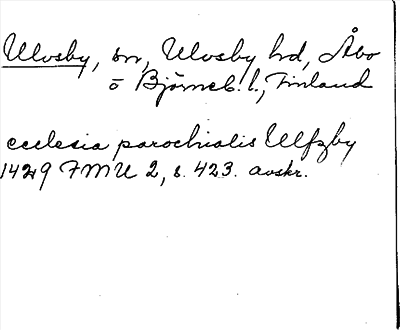 Ulvsby, sn, Ulvsby hd, Åbo
o Björneb. l., Finland
ecclesia parochialis Ulfzby
1429 FMU 2, s. 423. avskr.